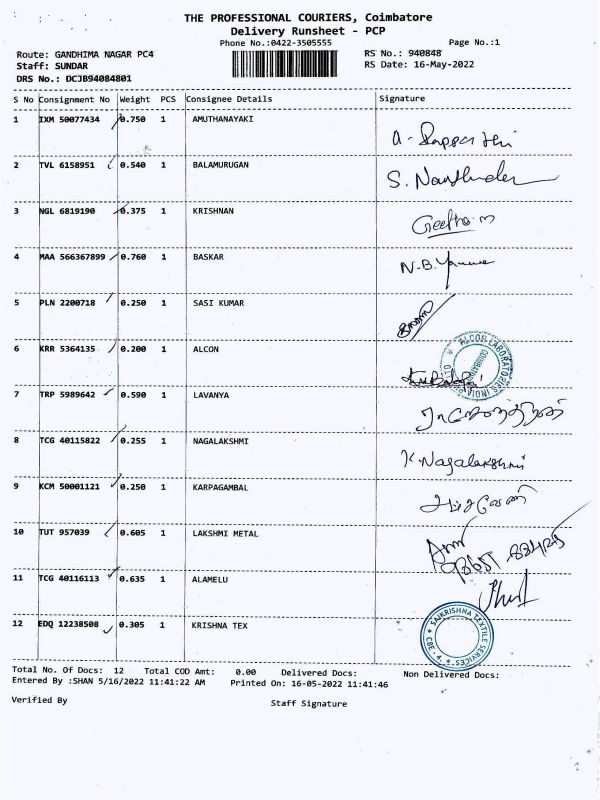 THE PROFESSIONAL COURIERS, Coimbatore
Delivery Runsheet - PCP
Phone No.:0422-3505555
Page No.:1
Route: GANDHIMA NAGAR PC4
RS No.: 940848
Staff: SUNDAR
RS Date: 16-May-2022
DRS No.: DCJB94084801
S No Consignment No Weight PCS Consignee Details Signature
1 IXM 50077434 0.750 1 AMUTHANAYAKI
2 TVL 6158951 0.540 1 BALAMURUGAN
S.
3 NGL 6819190 0.375 1 KRISHNAN
Geetha. m
4 MAA 566367899 0.760 1 BASKAR
N.B.
5 PLN 2200718 0.250 1 SASI KUMAR
6 KRR 5364135 0.200 1 ALCON
ALCON LABORATORIES INDIA
7 TRP 5989642 0.590 1 LAVANYA
8 TCG 40115822 0.255 1 NAGALAKSHMI
K. Nagalakshmi
9 KCM 50001121 0.250 1 KARPAGAMBAL
10 TUT 957039 0.605 1 LAKSHMI METAL
11 TCG 40116113 0.635 1 ALAMELU
12 EDQ 12238508 0.305 1 KRISHNA TEX
SAIKRISHNA TEXTILE SERVICES
CBE - 4.
Total No. Of Docs: 12 Total COD Amt: 0.00 Delivered Docs: Non Delivered Docs:
Entered By :SHAN 5/16/2022 11:41:22 AM Printed On: 16-05-2022 11:41:46
Verified By
Staff Signature